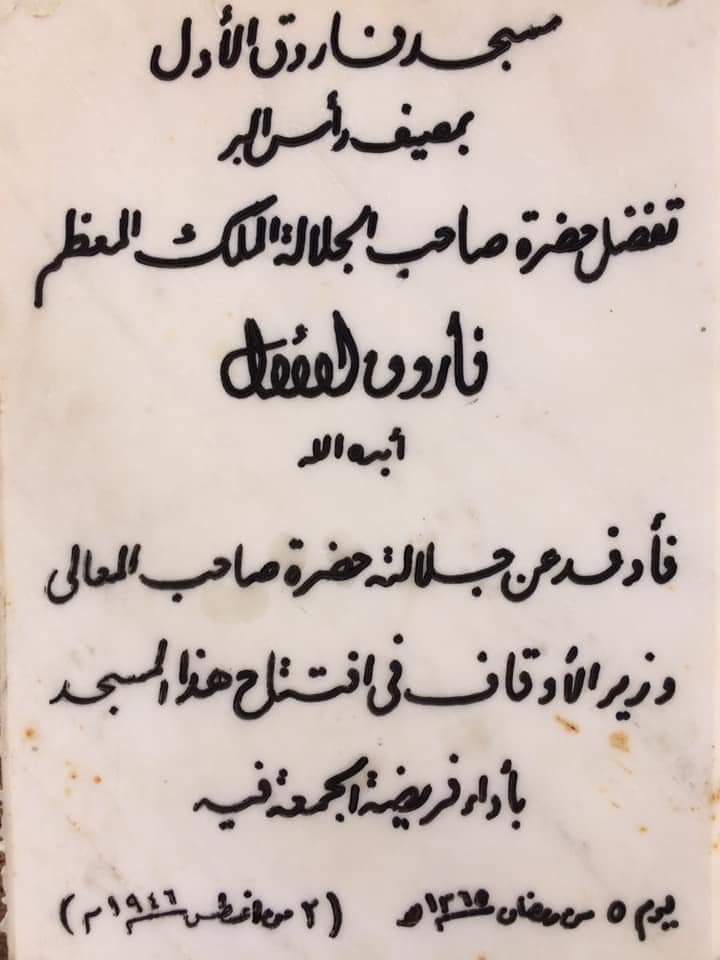 مسجد فاروق الأول
بمصيف رأس البر
تفضل حضرة صاحب الجلالة الملك المعظم
فاروق الأول
أيده الله
فأوفد عن جلالته حضرة صاحب المعالى
وزير الأوقاف فى افتتاح هذا المسجد
بأداء فريضة الجمعة فيه
يوم ٥ من رمضان ١٣٦٥ هـ (٢ من اغسطس ١٩٤٦ م)